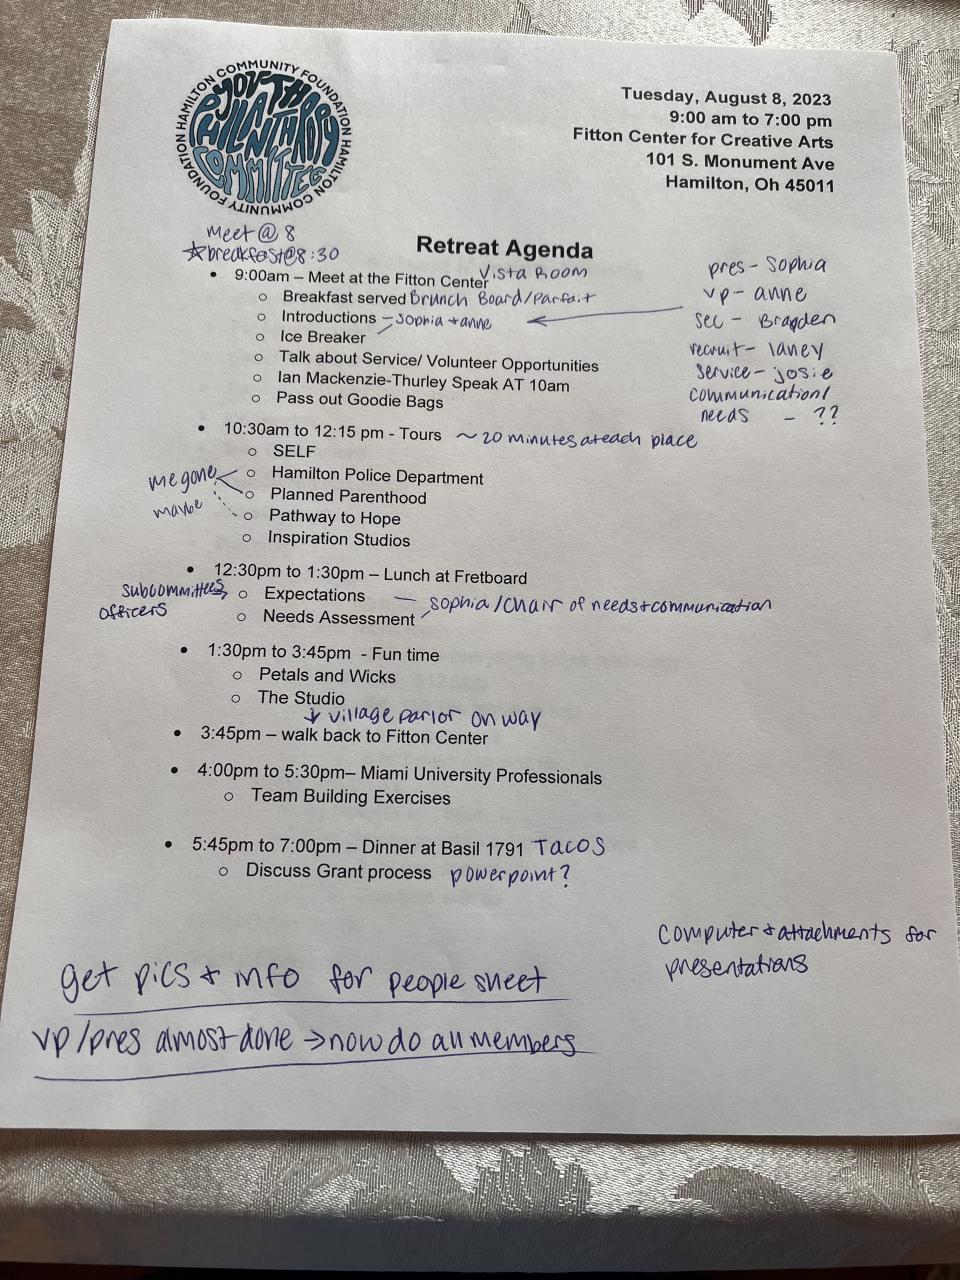 HAMILTON COMMUNITY FOUNDATION HAMILTON COMMUNITY FOUNDATION
YOUTH
PHILANTHROPY
COMMITTEE
Tuesday, August 8, 2023
9:00 am to 7:00 pm
Fitton Center for Creative Arts
101 S. Monument Ave
Hamilton, Oh 45011
meet @ 8
☆breakfast@8:30
Retreat Agenda
• 9:00am – Meet at the Fitton Center Vista Room
○ Breakfast served Brunch Board/Parfait
○ Introductions – Sophia + anne
○ Ice Breaker
○ Talk about Service/ Volunteer Opportunities
○ Ian Mackenzie-Thurley Speak AT 10am
○ Pass out Goodie Bags
pres - Sophia
vp - anne
sec - Brayden
recruit - laney
service - josie
communication/
needs - ??
• 10:30am to 12:15 pm - Tours ~20 minutes at each place
○ SELF
○ Hamilton Police Department
me gone
○ Planned Parenthood
maybe
○ Pathway to Hope
○ Inspiration Studios
• 12:30pm to 1:30pm – Lunch at Fretboard
subcommittees
officers
○ Expectations — sophia/chair of needs+communication
○ Needs Assessment
• 1:30pm to 3:45pm - Fun time
○ Petals and Wicks
○ The Studio
↓ village parlor on way
• 3:45pm – walk back to Fitton Center
• 4:00pm to 5:30pm– Miami University Professionals
○ Team Building Exercises
• 5:45pm to 7:00pm – Dinner at Basil 1791 Tacos
○ Discuss Grant process powerpoint?
computer + attachments for
presentations
get pics + info for people sheet
vp/pres almost done → now do all members